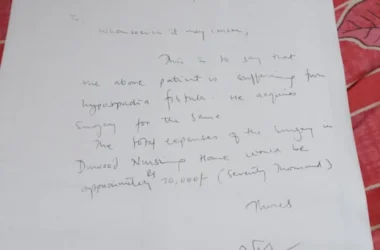 To
Whomsoever it may concern,
This is to say that
the above patient is suffering from
hypospadia fistula. He requires
surgery for the same
The total expenses of the surgery in
Nursing Home would be
approximately Rs 70,000/- (Seventy Thousand)
Thanks